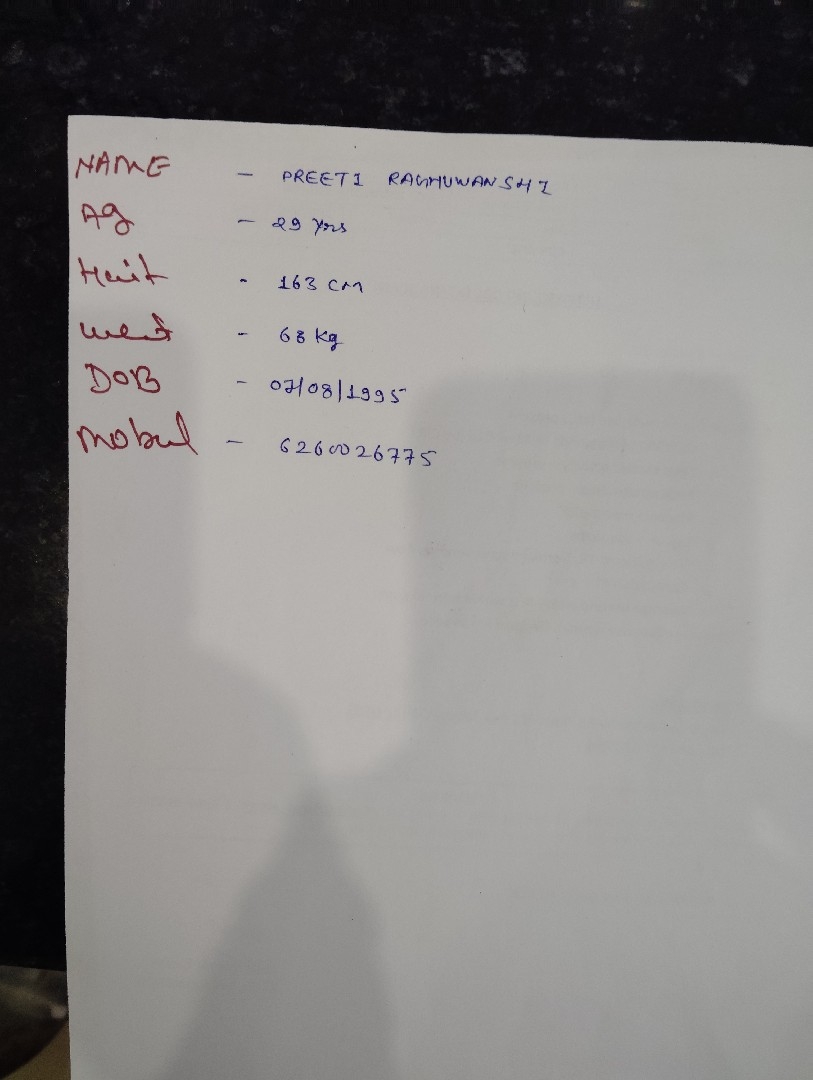 NAME - PREETI RAGHUWANSHI
Ag - 29 yrs
Hait - 163 CM
weit - 68 Kg
DOB - 07/08/1995
mobul - 6260026775